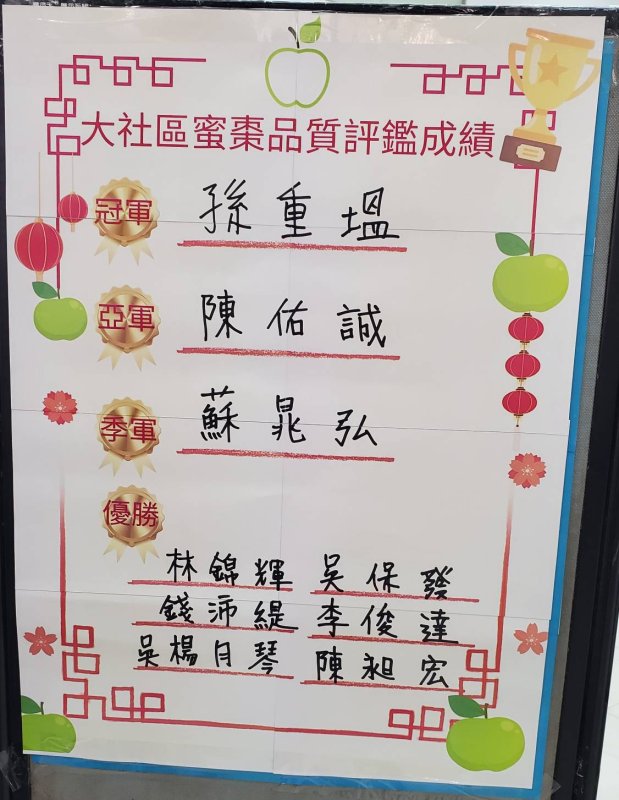 大社區蜜棗品質評鑑成績
冠軍 孫重塭
亞軍 陳佑誠
季軍 蘇晁弘
優勝
林錦輝 吳保發
錢沛緹 李俊達
吳楊月琴 陳昶宏